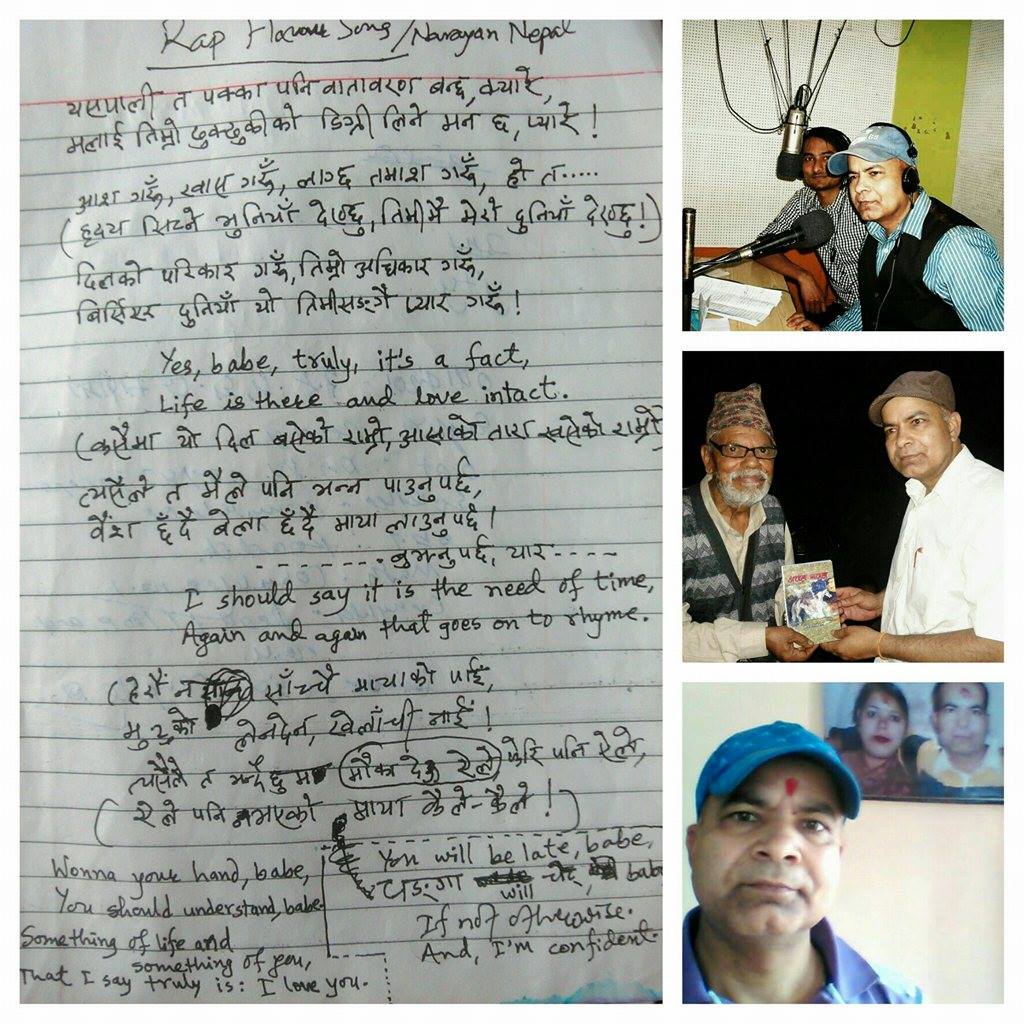 Rap Song/Narayan Nepal
यसपाली त पक्का पनि वातावरण बन्छ, क्यारे,
मलाई तिम्रो ढुकढुकीको डिग्री लिने मन छ, प्यारे!
आश गरूँ, स्वास गरूँ, लाग्छ तमाश गरूँ, हो त.....
(हृदय भित्रने मुनियाँ देख्छु, तिमीमै मेरो दुनियाँ देख्छु!)
दिलको परिकार गरूँ, तिम्रो अधिकार गरूँ,
बिर्सिएर दुनियाँ यो तिमीसङ्गै प्यार गरूँ!
Yes, babe, truly, it's a fact,
Life is there and love intact.
(कसैमा यो दिल बसेको राम्रो, आसाको तारा खसेको राम्रो
त्यसैले त मैले पनि भन्न पाउनुपर्छ,
वैंश छँदै बेला छँदै माया लाउनुपर्छ।
- - - - - - - - बुझ्नुपर्छ, यार - - - -
I should say it is the need of time,
Again and again that goes on to rhyme.
(हेरौं न साँच्चै मायाको पाईं,
मुटुको लेनदेन, खेलाँची नाईं!
त्यसैले त भन्दैछु मौका देऊ ऐले फेरि पनि ऐले,
(ऐले पनि नभएको माया कैले-कैले!)
Wonna your hand, babe,
You should understand, babe.
Something of life and
something of you,
That I say truly is: I love you.
You will be late, babe,
चङ्गा will चेट, babe
If not otherwise.
And, I'm confident.